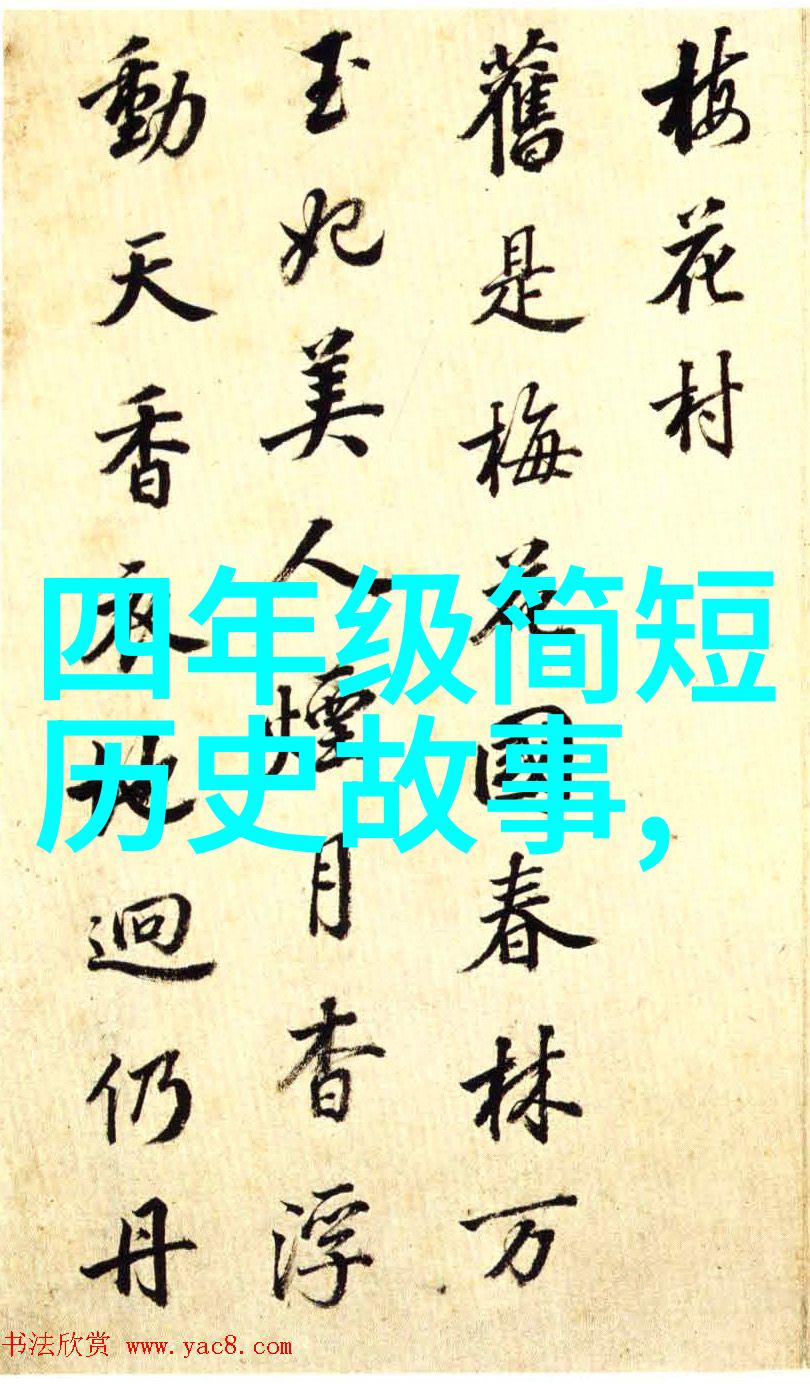 梅花村
舊是梅花國春林万
玉妃美人煙月杳浮
動天香地迥仍丹
四年级简短
历史故事,
书法欣赏 www.yac8.com